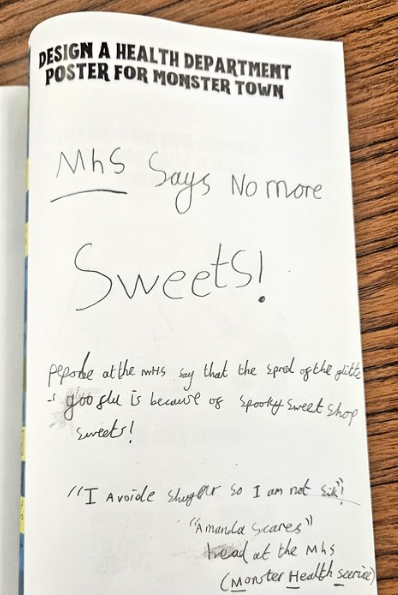 DESIGN A HEALTH DEPARTMENT
POSTER FOR MONSTER TOWN
Mhs Says No more
Sweets!
pepole at the MHS say that the spred of the glitte
-r goo flu is because of spooky sweet shop
sweets!
"I Avoide shuger so I am not sik"!
"Amanda Scares"
head at the Mhs
(Monster Health Scerice)